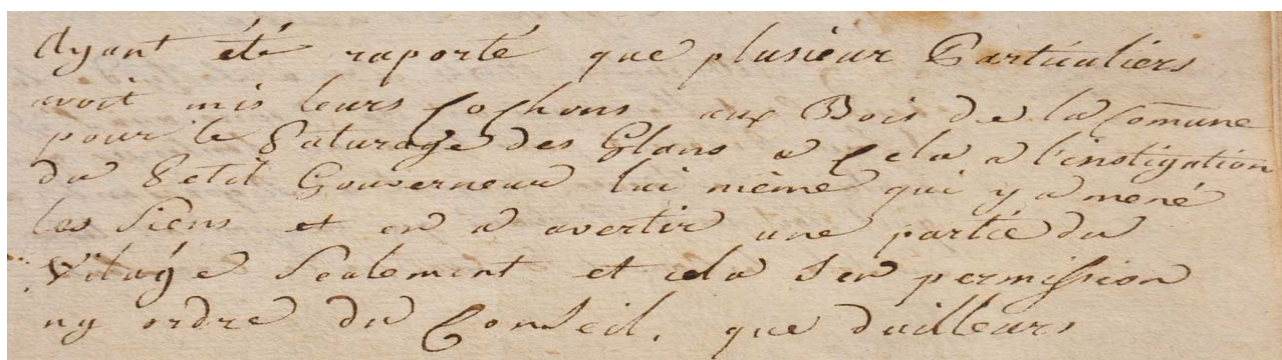 Ayant été raporté que plusieur Particuliers
avoit mis leurs Cochons aux Bois de la Com̄une
pour le Paturage des Glans a Cela a l'instigation
du Petit Gouverneur lui même qui y a mené
les Siens et en a avertir une partie du
Vilage Sealement et cela Sen permission
ny ordre du Conseil, que dailleurs